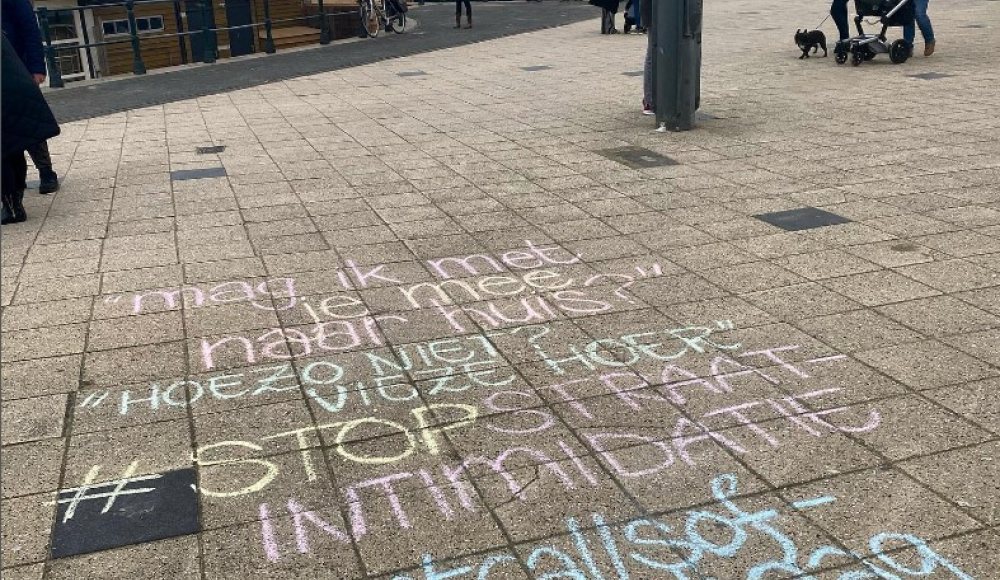 "mag ik met
je mee
naar huis?"
"HOEZO NIET?
VIEZE HOER"
#STOP STRAAT-
INTIMIDATIE
catcallsof-